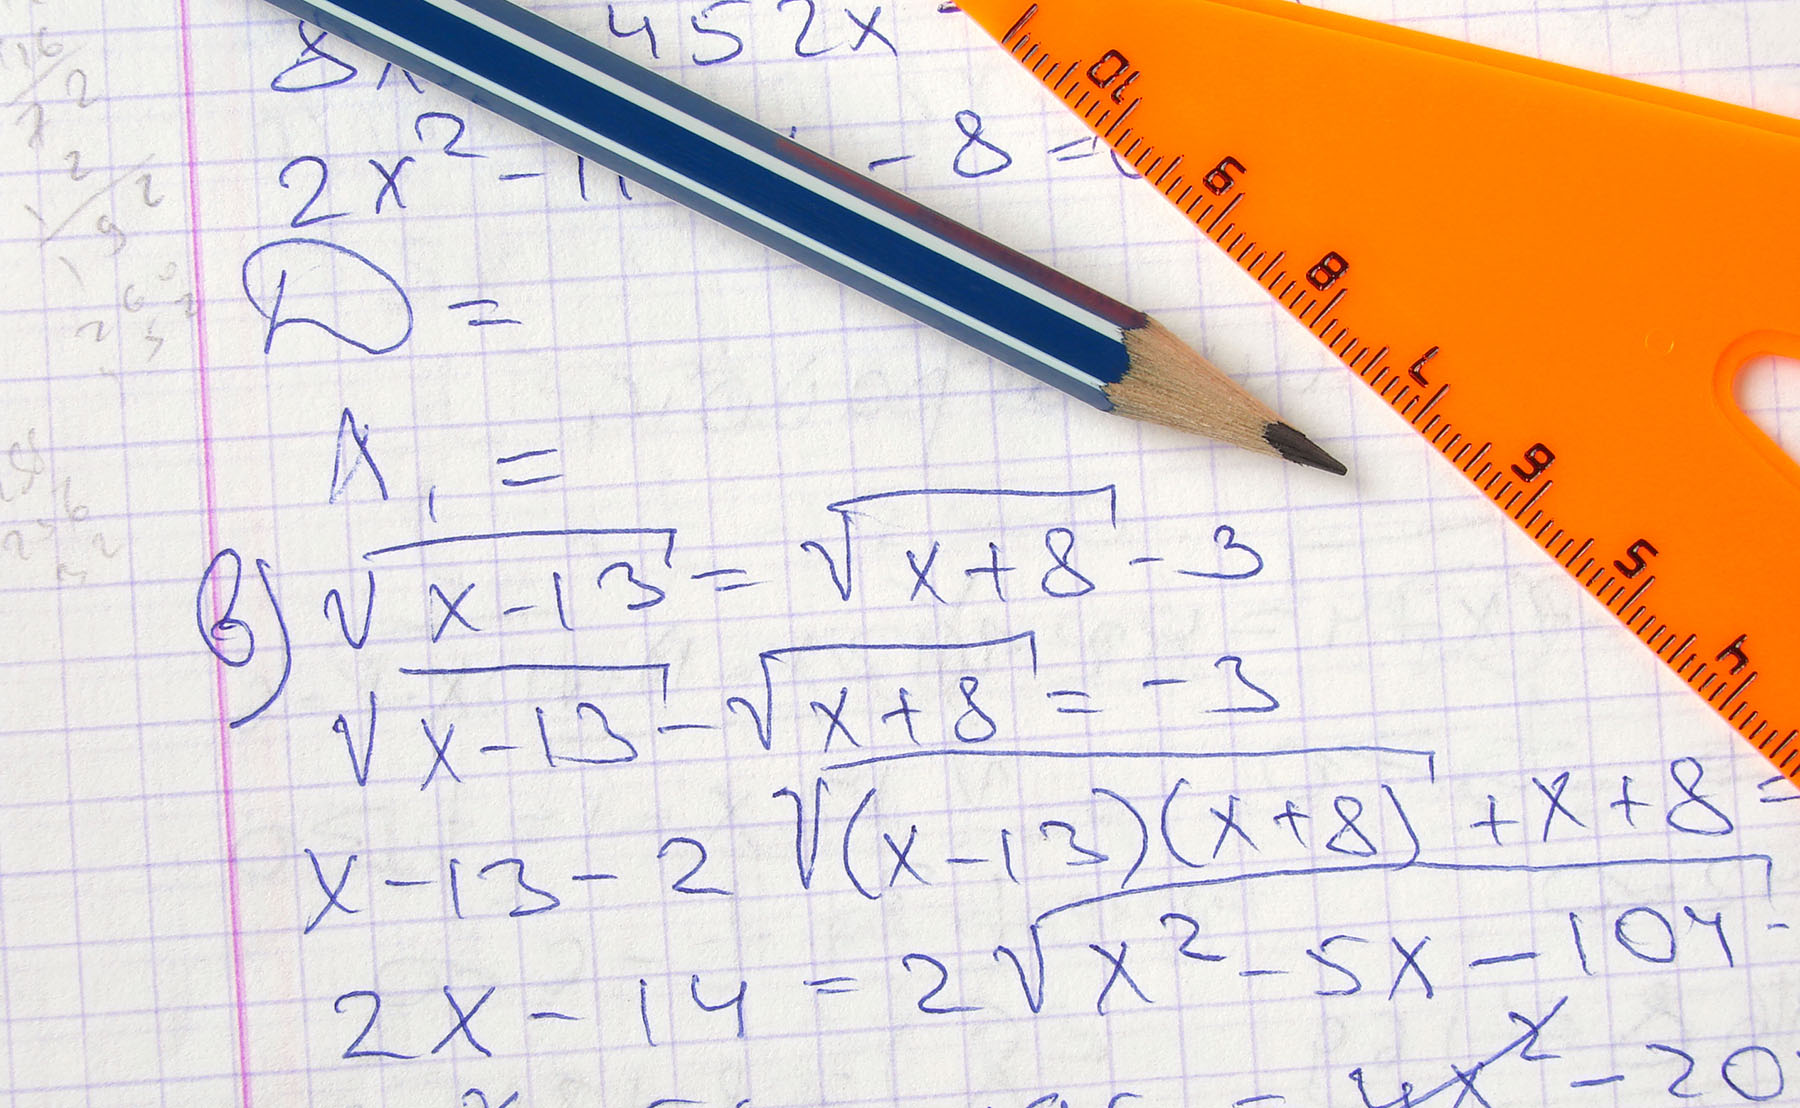 8x 452x
2x² - 11 - 8 =
D =
x₁ =
в) √(x-13) = √(x+8) - 3
√(x-13) - √(x+8) = -3
x - 13 - 2 √((x-13)(x+8)) + x + 8 =
2x - 14 = 2√(x² - 5x - 104)
= 4x² - 20
10
9
8
7
6
5
4